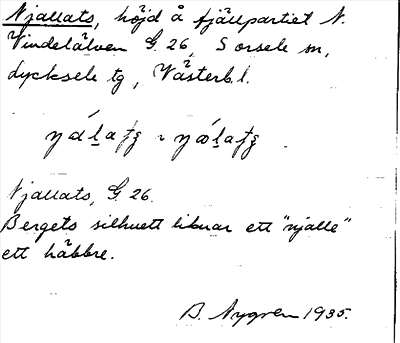 Njallats, höjd å fjällpartiet N.
Vindelälven G. 26, Sorsele sn,
Lycksele tg, Västerb. l.
Njallats, G. 26.
Bergets silhuett liknar ett "njalle"
ett häbbre.
B. Nygren 1935.